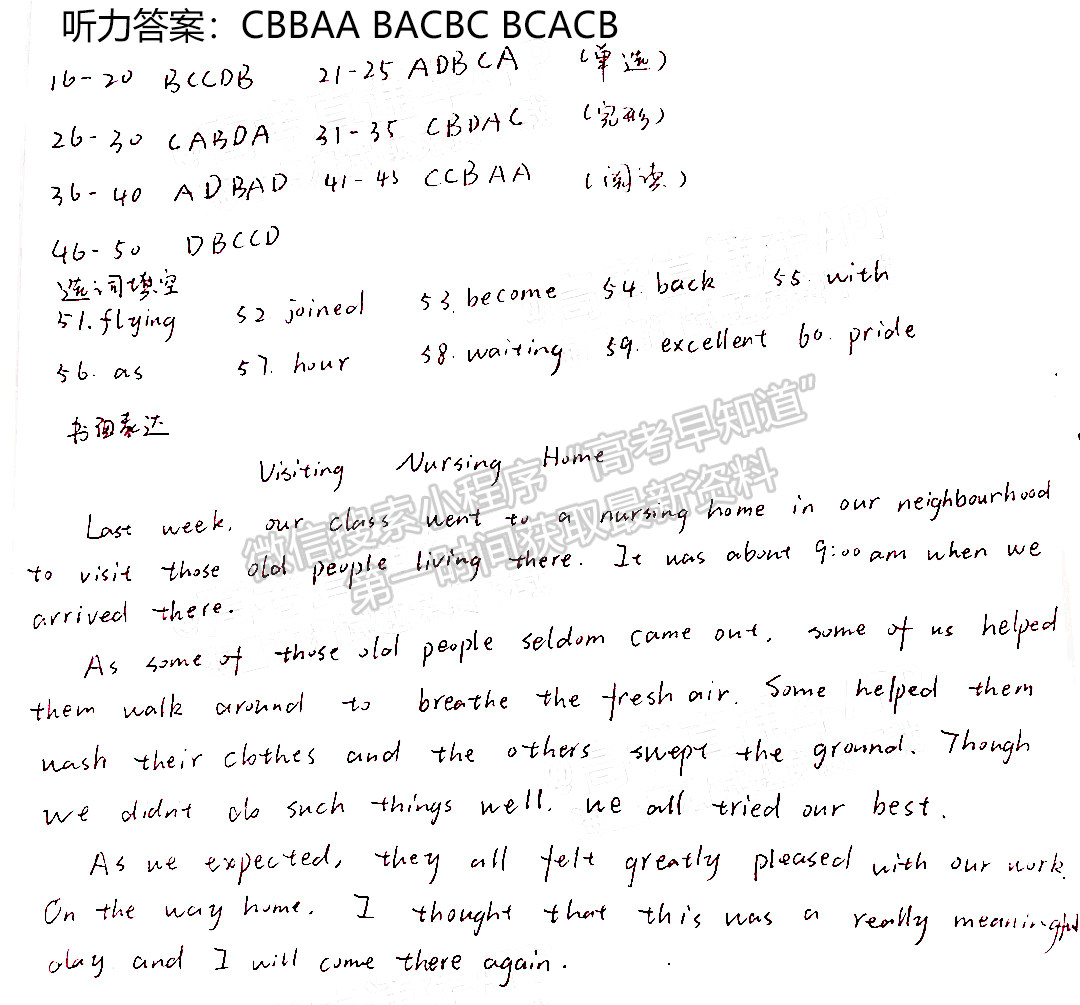 听力答案：CBBAA BACBC BCACB
16-20 BCCDB 21-25 ADBCA （单选）
26-30 CABDA 31-35 CBDAC （完形）
36-40 ADBAD 41-45 CCBAA （阅读）
46-50 DBCCD
选词填空
51. flying 52 joined 53. become 54. back 55. with
56. as 57. hour 58. waiting 59. excellent 60. pride
书面表达
Visiting Nursing Home
微信搜索小程序“高考早知道”
第一时间获取最新资料
Last week, our class went to a nursing home in our neighbourhood
to visit those old people living there. It was about 9:00 am when we
arrived there.
As some of those old people seldom came out, some of us helped
them walk around to breathe the fresh air. Some helped them
wash their clothes and the others swept the ground. Though
we didn't do such things well, we all tried our best.
As we expected, they all felt greatly pleased with our work.
On the way home, I thought that this was a really meaningful
day and I will come there again.